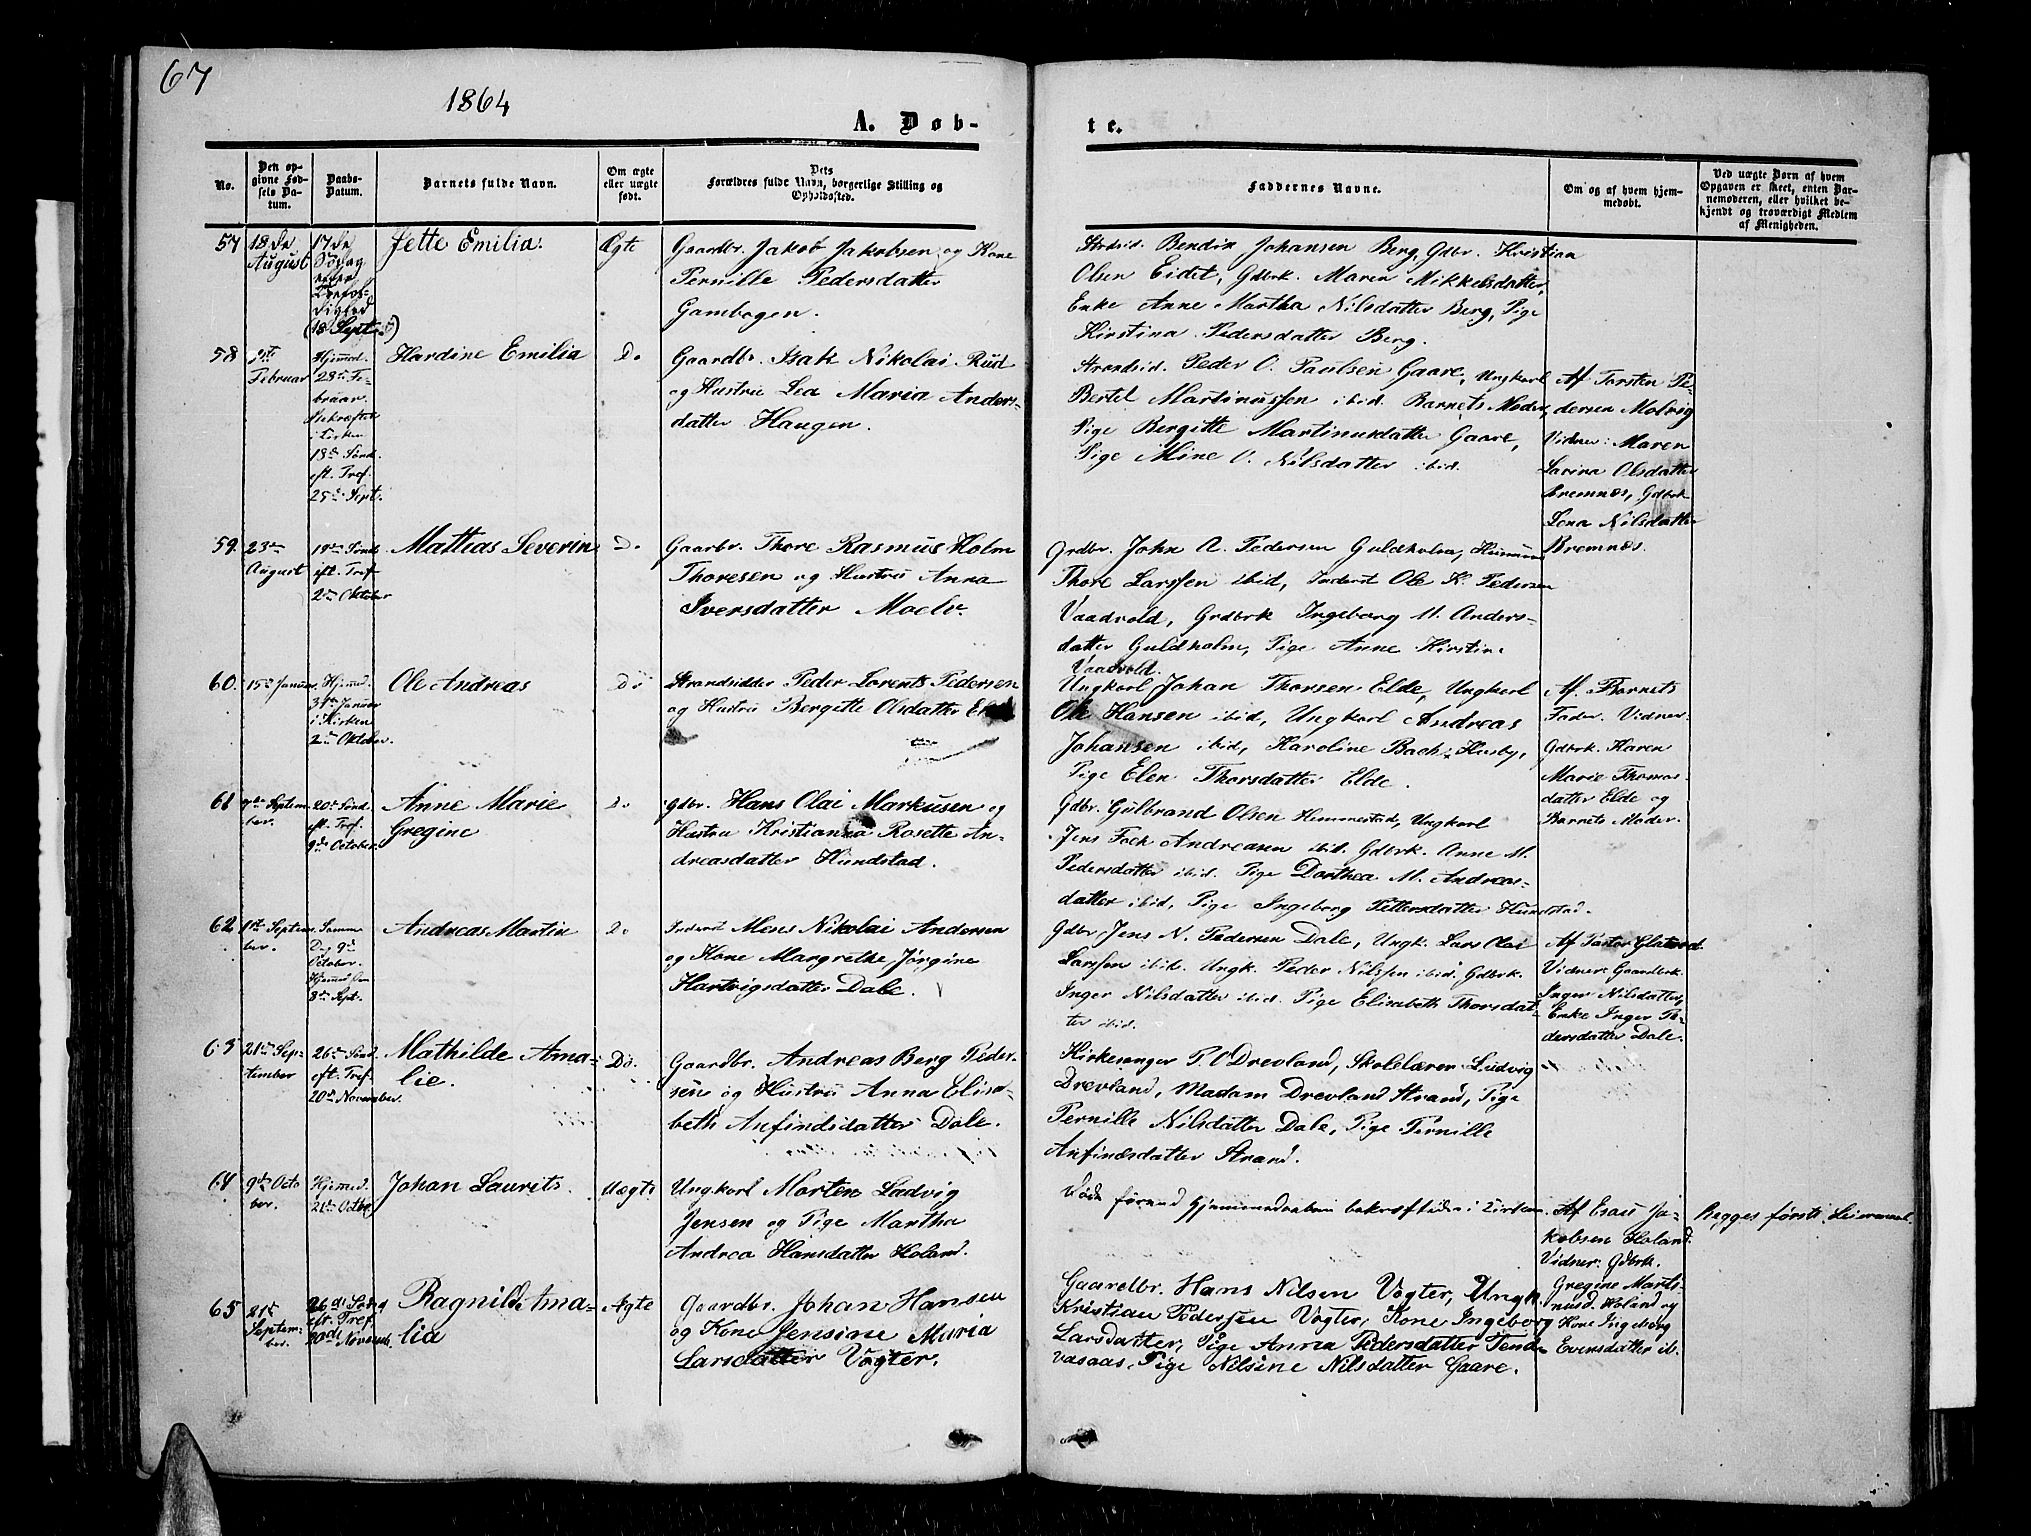 67
1864
A. Døb-
te.
No.
Den op-
givne Fød-
sels Da-
tum.
Daabs-
Datum.
Barnets fulde Navn.
Om ægte
eller uægte
født.
Dets
Forældres fulde Navn, borgerlige Stilling og
Opholdssted.
Faddernes Navne.
Om og af hvem hjem-
medøbt.
Ved uægte Børn af hvem
Opgaven er skeet, enten Bar-
nemoderen, eller hvilket be-
kjendt og troværdigt Medlem
af Menigheden.
57
18de
August
17de
Søndag
efter
Trefol-
dighed
(18 Sept.)
Jette Emilia.
Ægte
Gaardbr. Jakob Jakobsen og Kone
Pernille Pedersdatter
Gambogen.
Strdsid. Bendix Johansen Berg, Gdbr. Kristian
Olsen Eidet, Gdbrk. Maren Mikkelsdatter,
Enke Anne Martha Nilsdatter Berg, Pige
Kirstina Pedersdatter Berg.
58
Februar
Hjemmed.
28de Fe-
bruar.
Bekræftet
i Kirken
18de Sønd.
eft. Tref.
25de Sept.
Hardine Emilia
Do
Gaardbr. Isak Nikolai Rud
og Hustru Lea Maria Anders-
datter Haugen.
Strandsid. Peder O. Paulsen Gaare, Ungkarl
Bertel Martinussen ibid. Barnets Moder,
Pige Bergitte Martinusdatter Gaare,
Pige Mine O. Nilsdatter ibid.
Af Torsten Pe-
dersen Molvig
Vidner: Maren
Larina Olsdatter
Bremnes, Gdbrk
Lena Nilsdatter
Bremnes.
59.
23de
August
19de Sønd.
eft. Tref
2den Oktober
Mattias Severin
Do
Gaarbr. Thore Rasmus Holm
Thoresen og Hustru Anna
Iversdatter Moelv.
Grdbr. John A. Pedersen Guldholm, Husmand
Thore Larssen ibid, Inderst Ole K. Pedersen
Vaadvold, Grdbrk Ingeborg M. Anders-
datter Guldholm, Pige Anne Kirstine
Vaadvold.
60.
15de Januar.
Hjemmed.
31te Januar
i Kirken
2den Oktober.
Ole Andreas
Do
Strandsidder Peder Lorents Pedersen
og Hustru Bergitte Olsdatter
Ungkarl Johan Thorsen Elde, Ungkarl
Ole Hansen ibid, Ungkarl Andreas
Johansen ibid, Karoline Bach Husby,
Pige Elen Thorsdatter Elde.
Af Barnets
Fader. Vidner
Gdbrk. Karen
Marie Thomas-
datter Elde og
Barnets Moder.
61
Septem-
ber.
20de Sønd.
eft. Tref.
9de October.
Anne Marie
Gregine
Do
Gdbr. Hans Olai Markusen og
Hustru Kristianna Rosette An-
dreasdatter Hundstad.
Gdbr. Gulbrand Olsen Hemmestad, Ungkarl
Jens Fock Andreasen ibid. Gdbrk. Anne M.
Pedersdatter ibid. Pige Dorthea M. Andreas-
datter ibid, Pige Ingeborg Pettersdatter Hundstad.
62
1ste Septem-
ber.
Samme
Dag 9de
October.
Hjemmedøbt
8de Sept.
Andreas Martin
Do
Inderst Mens Nikolai Andersen
og Kone Margrethe Jørgine
Hartvigsdatter Dale.
Gdbr. Jens N. Pedersen Dale, Ungk. Lars Olai
Larssen ibid. Ungk. Peder Nilssen ibid. Gdbrk.
Inger Nilsdatter ibid. Pige Elisabeth Thorsdat-
ter ibid.
Af Pastor
Vidner: Gaardbrk.
Inger Nilsdatter,
Enke Inger Pe-
dersdatter Dale.
63
21de Sep-
tember
26de Sønd.
eft. Tref.
20de November.
Mathilde Ama-
lie.
Do.
Gaardbr. Andreas Berg Peder-
sen og Hustru Anna Elisa-
beth Anfindsdatter Dale.
Kirkesanger P. O Drevland, Skolelærer Ludvig
Drevland, Madam Drevland Strand, Pige
Pernille Nilsdatter Dale, Pige Pernille
Anfinsdatter Strand.
64
9de Octo
ber.
Hjemmed.
21de Octbr
Johan Laurits.
Uægte
Ungkarl Morten Ludvig
Jensen og Pige Martha
Andrea Hansdatter Holand.
Døde førend Hjemmedaaben bekræftedes i Kirken.
Af Esau Ja-
kobsen Holand.
Vidner: Gdbrk.
Gregine Marti-
nusd. Holand og
Kone Ingeborg
Eversdatter ib.
Begges første Leiermaal.
65
21de
Septem-
ber.
26de Sønd
eft. Tref
20de Novemb.
Ragnilde Ama-
lia
Ægte
Gaardbr. Johan Hansen
og Kone Jensine Maria
Larsdatter Vogter.
Gaardbr. Hans Nilsen Vogter, Ungk.
Kristian Pedersen Vogter, Kone Ingeborg
Larsdatter, Pige Anna Pedersdatter Tend-
vasaas, Pige Nilsine Nilsdatter Gaare.